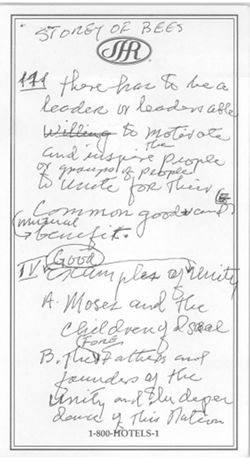 STOREY OF BEES
SHR
III there has to be a
leader or leaders able
Willing to motivate
and inspire the People
or groups of people
to Unite for Their
Common good and
mutual benefit.
Good
IV Examples of Unity
A. Moses and the
Children of Isreal
B. The Fore Fathers and
founders of the
Unity and Indepen
dance of This Nation
1-800-HOTELS-1